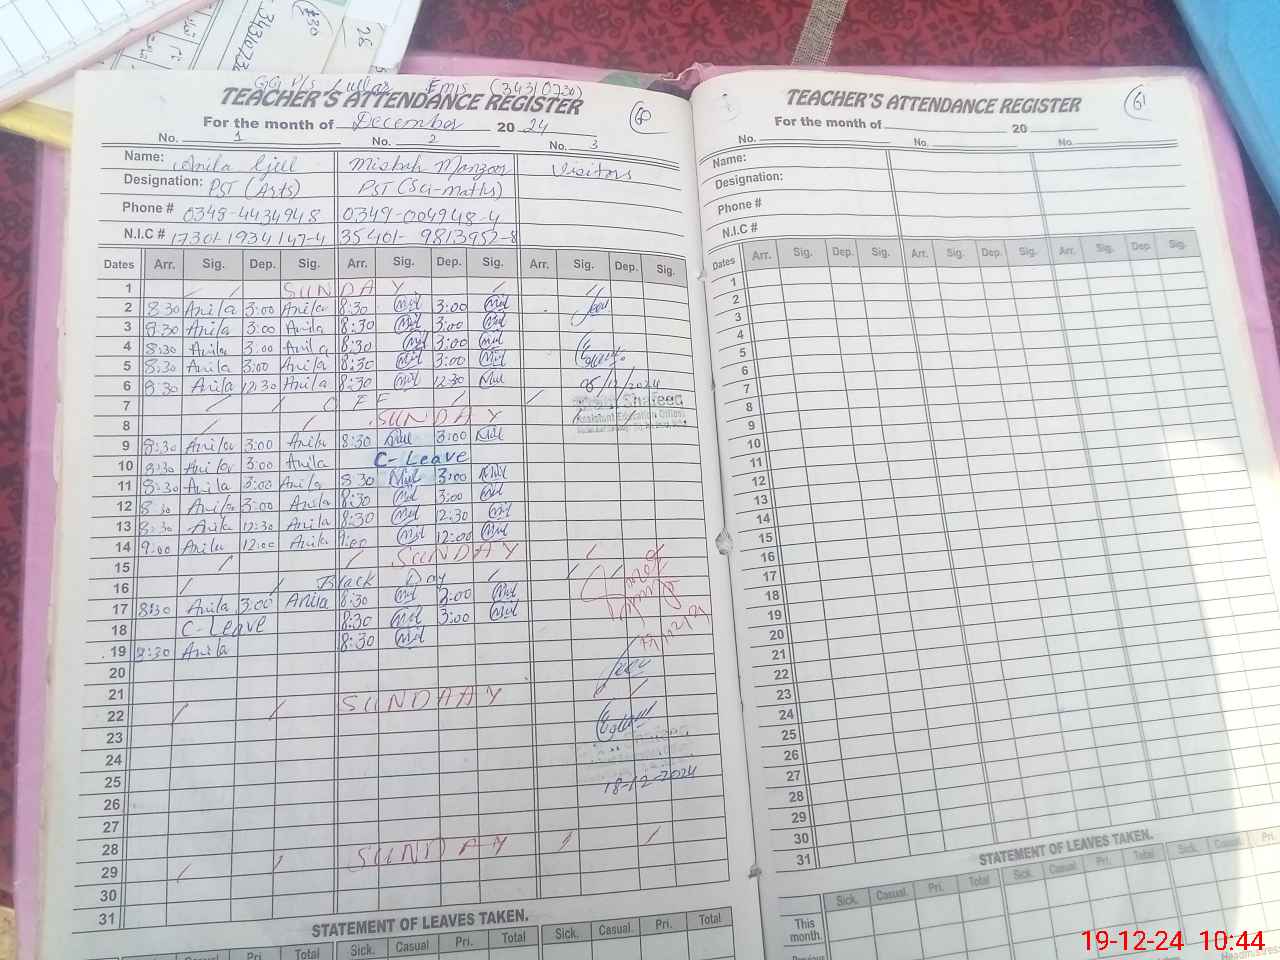 GGP/S Emis (34310730)
TEACHER'S ATTENDANCE REGISTER
For the month of December 20 24
No. 1 No. 2 No. 3
Name: Anila Gill Misbah Manzoor Visitors
Designation: PST (Arts) PST (Sci-maths)
Phone # 0348-4434948 0349-004948-4
N.I.C # 17301-1934147-4 35401-9813957-8
Dates Arr. Sig. Dep. Sig. Arr. Sig. Dep. Sig. Arr. Sig. Dep. Sig.
1 SUNDAY
2 8:30 Anila 3:00 Anila 8:30 3:00
3 8:30 Anila 3:00 Anila 8:30 3:00
4 8:30 Anila 3:00 Anila 8:30 3:00
5 8:30 Anila 3:00 Anila 8:30 3:00
6 8:30 Anila 12:30 Anila 8:30 12:30
7 OFF
8 SUNDAY
Assistant Education Officer
9 8:30 Anila 3:00 Anila 8:30 3:00
10 8:30 Anila 3:00 Anila C-Leave
11 8:30 Anila 3:00 Anila 8:30 3:00
12 8:30 Anila 3:00 Anila 8:30 3:00
13 8:30 Anila 12:30 Anila 8:30 12:30
14 9:00 Anila 12:00 Anila 9:00 12:00
15 SUNDAY
16 Black Day
17 8:30 Anila 3:00 Anila 8:30 3:00
18 C-Leave 8:30 3:00
19 8:30 Anila 8:30
20
21
22 SUNDAAY
23
24
25 18-12-2024
26
27
28
29 SUNDAY
30
31
STATEMENT OF LEAVES TAKEN.
Casual Pri. Total Sick. Casual Pri. Total Sick. Casual. Pri. Total
61
TEACHER'S ATTENDANCE REGISTER
For the month of 20
No. No. No.
Name:
Designation:
Phone #
N.I.C #
Dates Arr. Sig. Dep. Sig. Arr. Sig. Dep. Sig. Arr. Sig. Dep. Sig.
1
2
3
4
5
6
7
8
9
10
11
12
13
14
15
16
17
18
19
20
21
22
23
24
25
26
27
28
29
30
31
STATEMENT OF LEAVES TAKEN.
Sick. Casual. Pri. Total Sick. Casual. Pri. Total Sick. Casual. Pri.
This month.
Previous
19-12-24 10:44